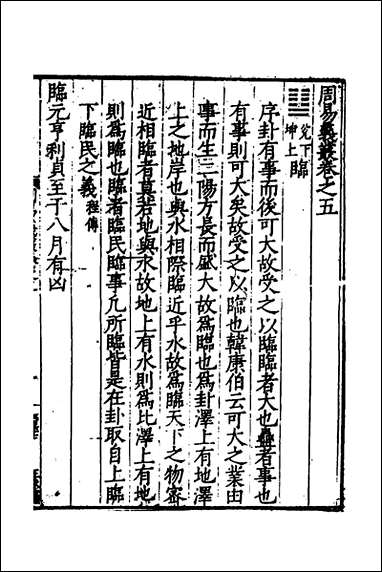 周易義叢卷之五
䷒兌下坤上臨
序卦有事而後可大故受之以臨臨者大也蠱者事也
有事則可大矣故受之以臨也韓康伯云可大之業由
事而生二陽方長而盛大故爲臨也爲卦澤上有地澤
上之地岸也與水相際臨近乎水故爲臨天下之物密
近相臨者莫若地與水故地上有水則爲比澤上有地
則爲臨也臨者臨民臨事凡所臨皆是在卦取自上臨
下臨民之義程傳
臨元亨利貞至于八月有凶